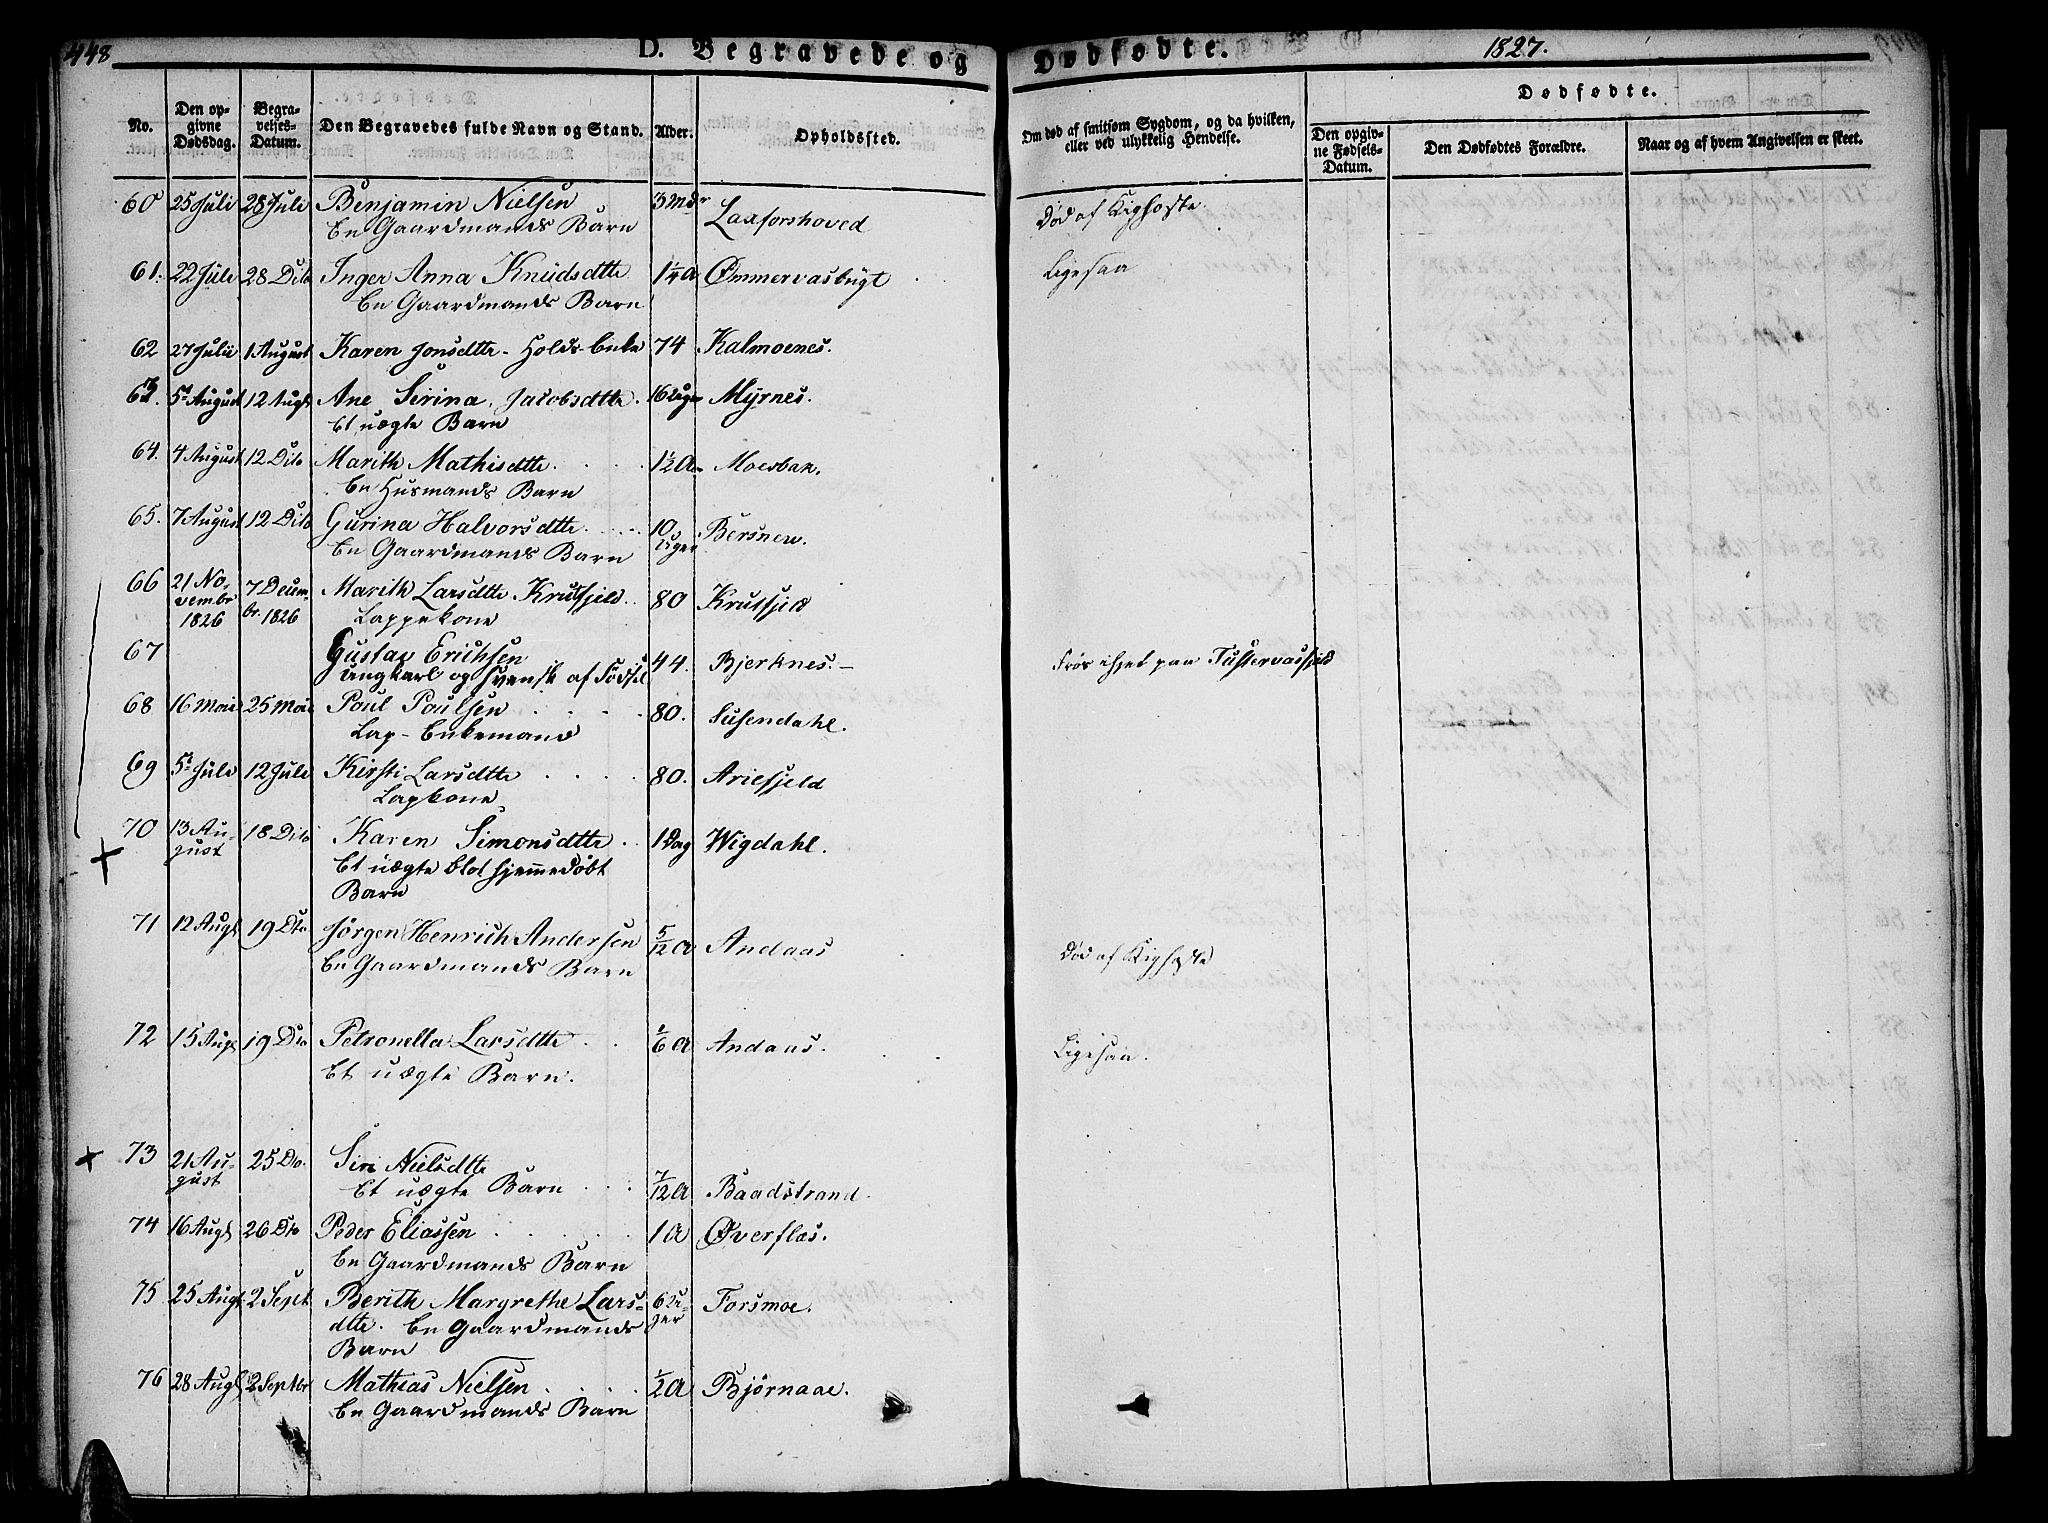 448
D. Begravede og Dødfødte. 1827.
No.
Den opgivne Dødsdag.
Begravelses-Datum.
Den Begravedes fulde Navn og Stand.
Alder.
Opholdssted.
Om død af smitsom Sygdom, og da hvilken, eller ved ulykkelig Hendelse.
Dødfødte.
Den opgivne Fødsels-Datum.
Den Dødfødtes Forældre.
Naar og af hvem Angivelsen er skeet.
60 25 Juli 28 Juli Benjamin Nielsen 3 Mdr Laxforshoved Død af Kighoste.
En Gaardmands Barn
61. 22 Juli 28 Dito Inger Anna Knudsdtte 1¼ A Ømmervasbugt Ligesaa
En Gaardmands Barn
62 27 Julii 1 August Karen Jonsdtte - Holds-Enke 74 Kalmoenes.
63. 5t August 12 Augt Ane Serina Jacobsdtte. 16 Uger Myrnes.
Et uægte Barn
64. 4 August 12 Dito Marith Mathisdtte. 1½ A Moesbak.
En Husmands Barn
65. 7 August 12 Dito Gurina Halvorsdtte 10 Uger Bersnew.
En Gaardmands Barn
66 21 November 1826 7 Decembr. 1826 Marith Larsdtte Krutfjeld. 80 Krutfjeld
Lappekone
67 Gustav Erichsen 44. Bjerknes.- Frøs ihjel paa Tustervasfjeld
Ungkarl og Svensk af Fødsel
68 16 Mai 25 Mai Paul Paulsen 80. Susendahl.
Lap-Enkemand
69 5te Juli 12 Juli Kirsti Larsdtte 80. Ariefjeld
Lapkone
70 13 August 18 Dito Karen Simonsdtte 1 Dag Wigdahl.
Et uægte blot hjemmedøbt
Barn
71 12 Augt 19 Dto Jørgen Henrich Andersen 5/12 A Andaas Død af Kighoste
En Gaardmands Barn
72 15 Augt 19 Dto Petronella Larsdtte 1/6 A Andaas. Ligesaa.
Et uægte Barn.
73 21 August 25 Dto. Siri Nielsdtte
Et uægte Barn 7/12 A Baadstrand.
74 16 Augt 26 Dto Peder Eliassen 1 A Øverflas.
En Gaardmands Barn
75 25 Augt 2 Sept Berith Margrethe Lars- 6 Uger Forsmoe.
dtte. En Gaardmands
Barn
76 28 Augt 2 Septbr Mathias Nielsen ½ A Bjørnaae.
En Gaardmands Barn